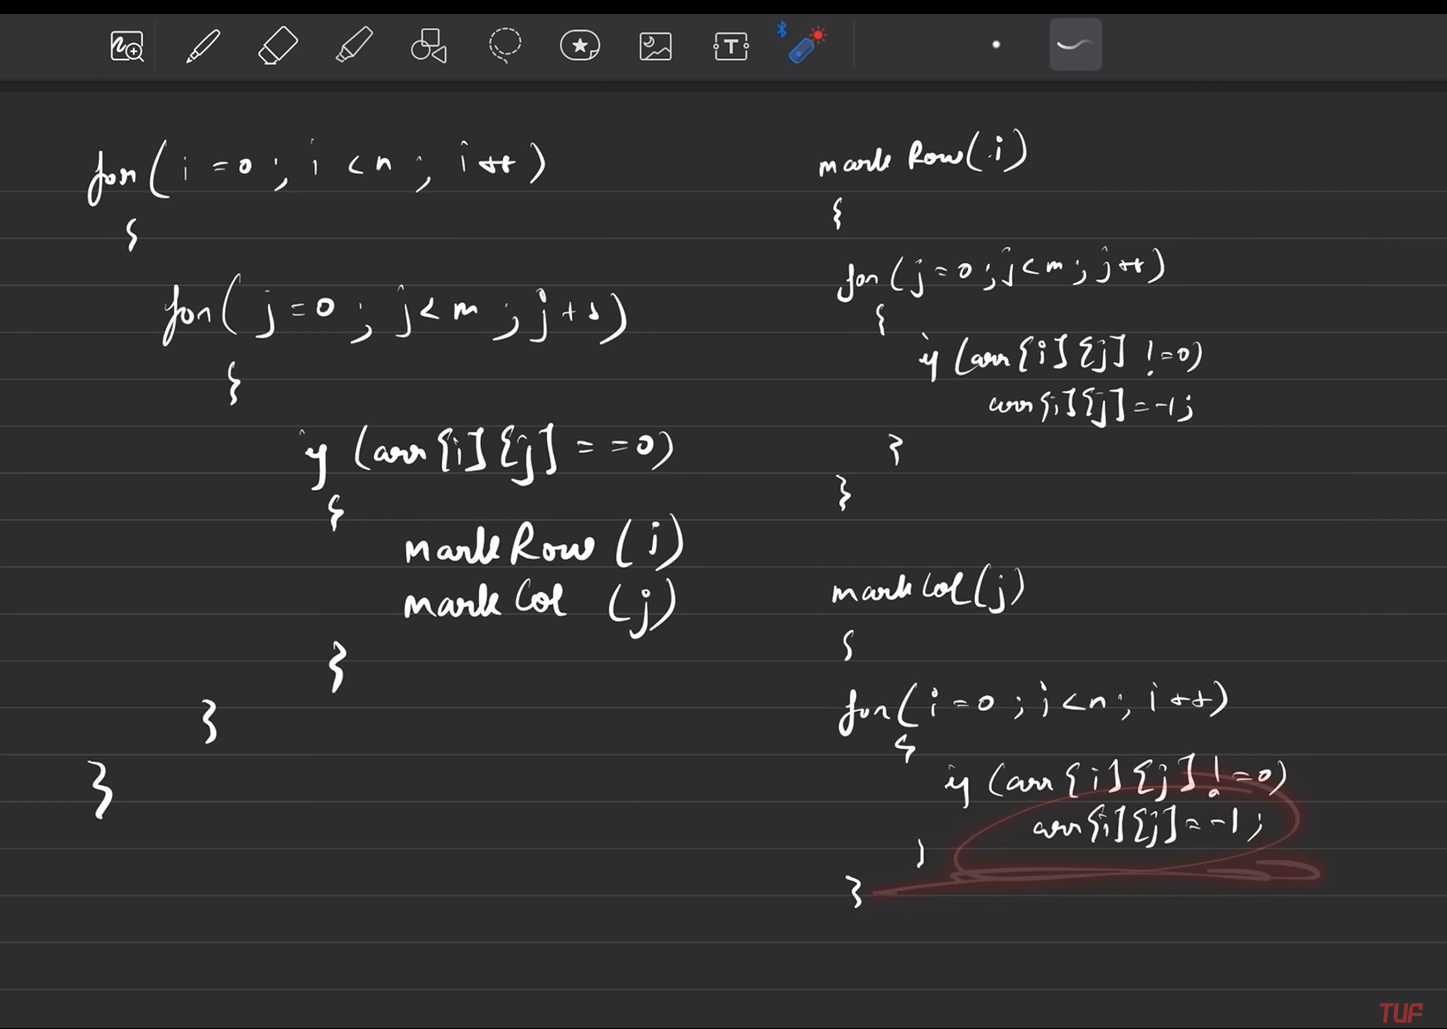 for(i=0; i<n; i++)
{
for(j=0; j<m; j++)
{
if (arr[i][j]==0)
{
markRow(i)
markCol(j)
}
}
}
markRow(i)
{
for(j=0;j<m;j++)
{
if (arr[i][j] !=0)
arr[i][j]=-1;
}
}
markCol(j)
{
for(i=0;i<n;i++)
{
if (arr[i][j]!=0)
arr[i][j]=-1;
}
}
TUF